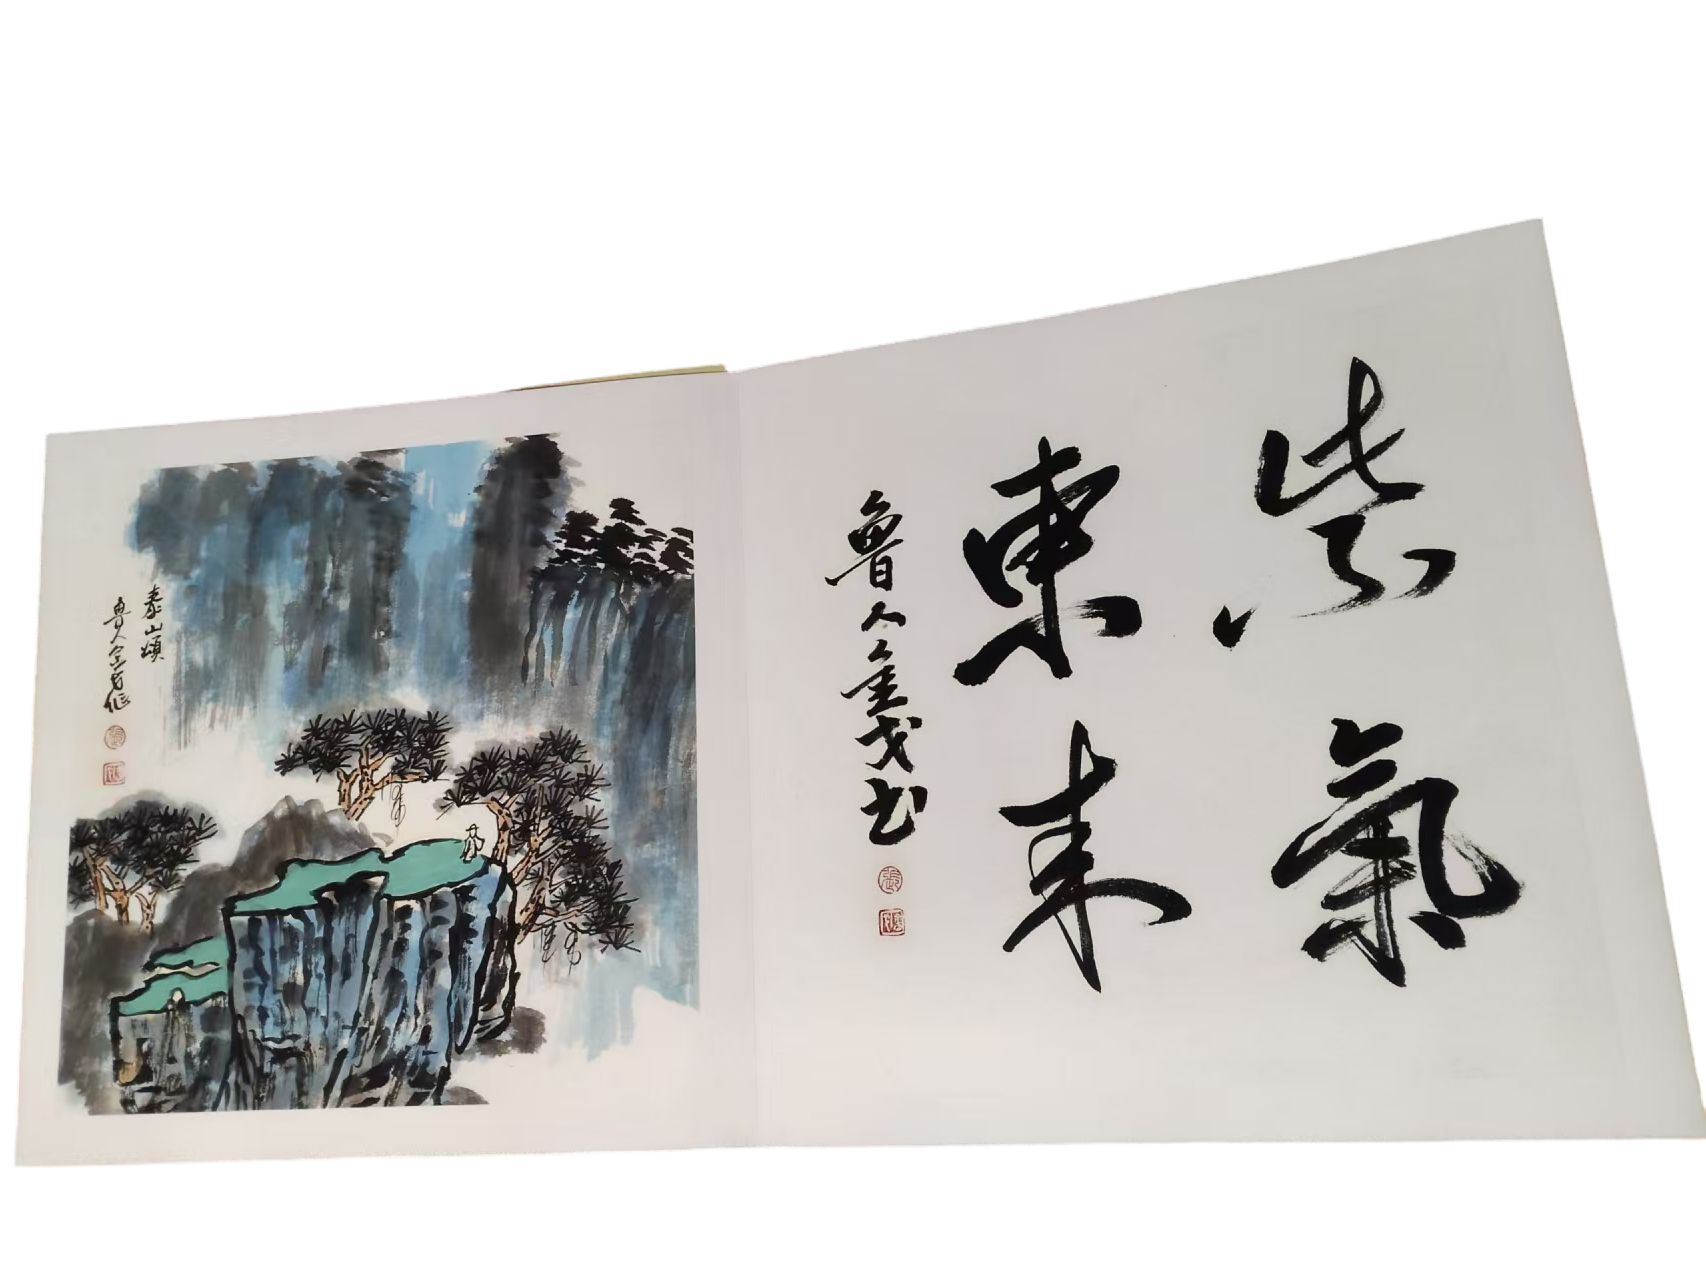 紫氣
東来
魯人金戈书
泰山頌
魯人金戈作